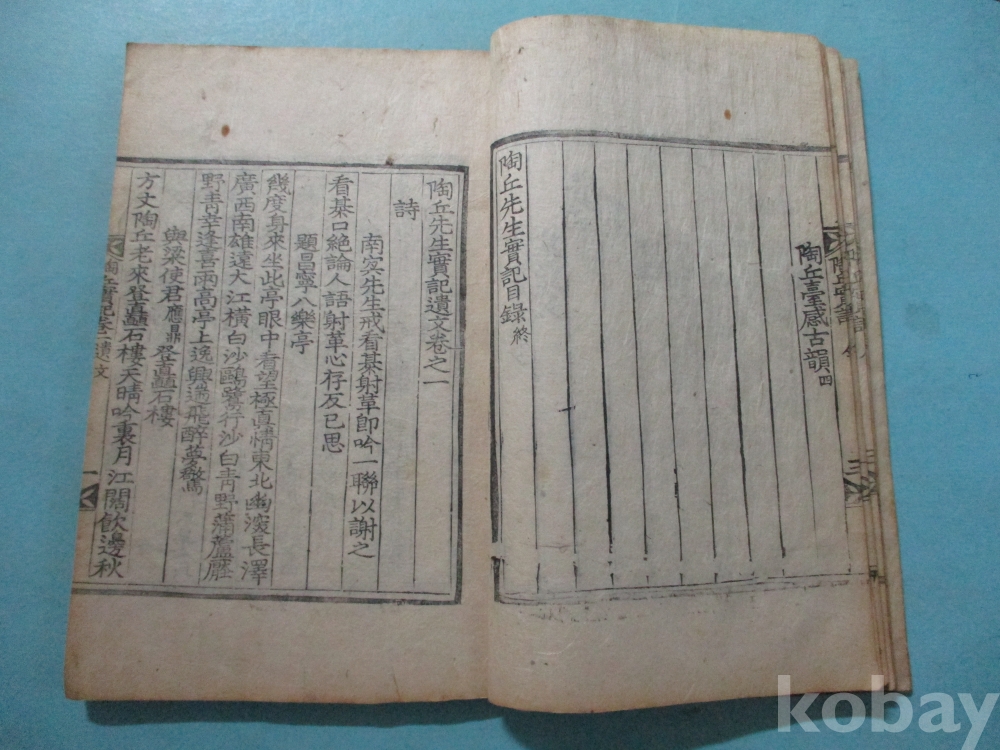 陶丘臺感古韻 四
陶丘先生實記目錄 終
陶丘先生實記遺文卷之一
詩
南冥先生戒看棊射革即吟一聯以謝之
看棊口絶論人語射革心存反已思
題昌寧八樂亭
幾度身來坐此亭眼中看望極眞情東北幽深長澤
廣西南雄遠大江橫白沙鷗鷺行沙白靑野蒲蘆
野靑幸逢喜雨高亭上逸興遄飛醉夢驚
與梁使君應鼎登矗石樓
方丈陶丘老來登矗石樓天晴吟裏月江闊飮邊秋
陶丘實記卷之一遺文
一
陶丘實記
三
kobay